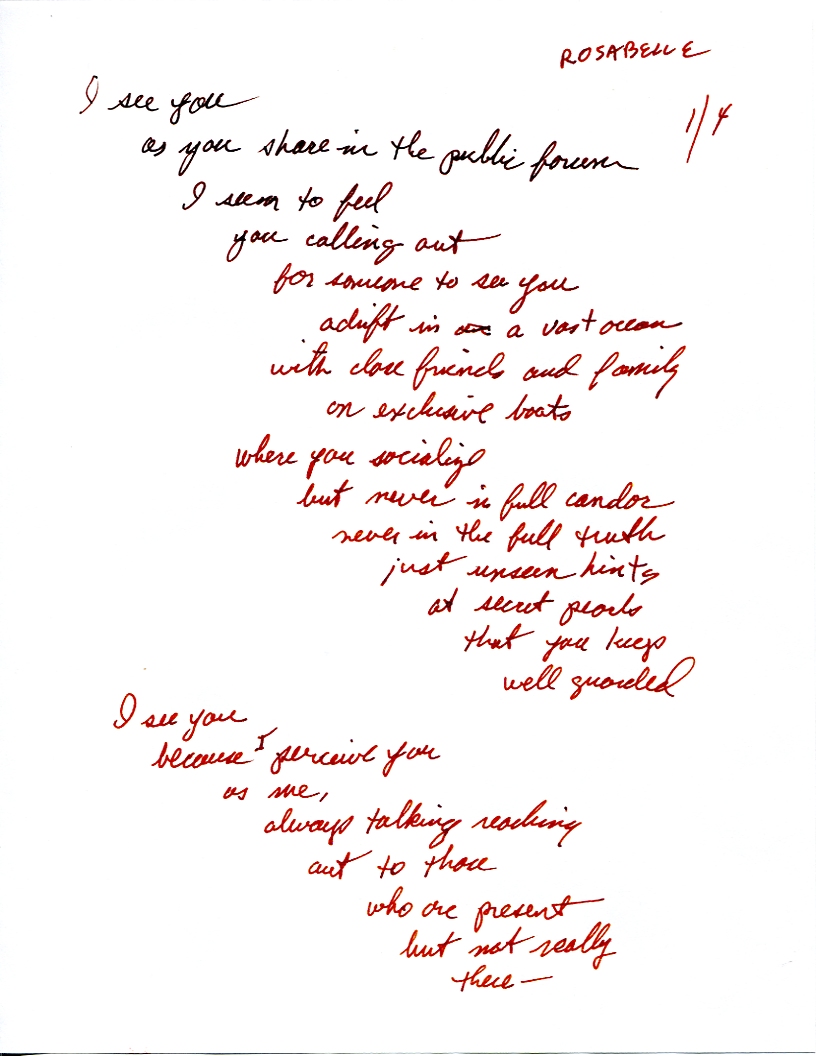 ROSABELLE
1/4
I see you
as you share in the public forum
I seem to feel
you calling out
for someone to see you
adrift in a vast ocean
with close friends and family
on exclusive boats
where you socialize
but never in full candor
never in the full truth
just unseen hints
at secret pearls
that you keep
well guarded
I see you
because I perceive you
as me,
always talking reaching
out to those
who are present
but not really
there —